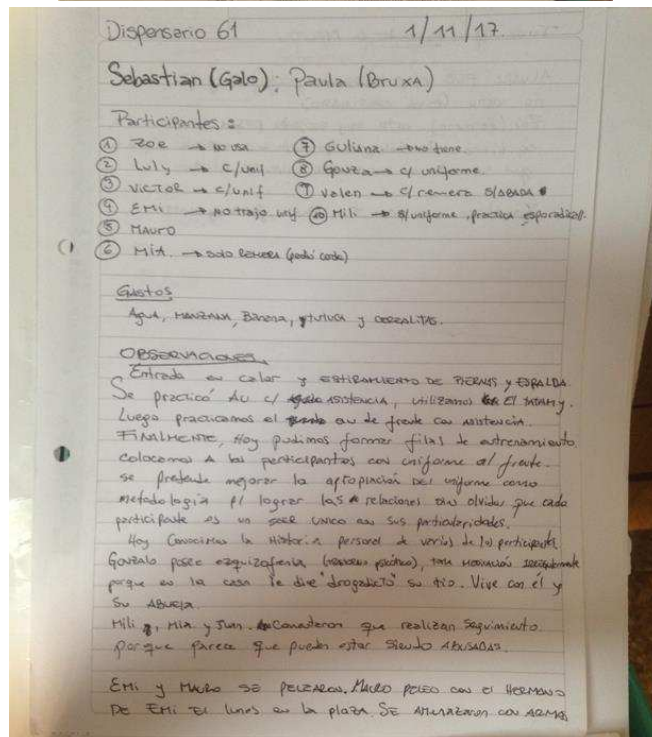 Dispensario 61 1/11/17
Sebastian (Galo); Paula (Bruxa)
Participantes:
① Zoe → no usa ⑦ Guliana → no tiene
② Luly → c/unif ⑧ Gonza → c/ uniforme
③ Victor → c/unif ⑨ Valen → c/ remera s/abada
④ Emi → no trajo unif ⑩ Mili → s/uniforme, practica esporadica
⑤ Mauro
⑥ Mia → solo remera
Gastos
Agua, manzana, Banana, y cerealitas.
OBSERVACIONES
Entrada en calor y estiramiento de piernas y espalda.
Se practicó Au c/ asistencia, utilizamos el tatamy.
Luego practicamos el au de frente con asistencia.
Finalmente, Hoy pudimos formar filas de entrenamiento
colocamos a los participantes con uniforme al frente.
se pretende mejorar la apropiación del uniforme como
metodologia p/ lograr las relaciones sin olvidar que cada
participante es un ser unico con sus particularidades.
Hoy Conocimos la Historia personal de varios de los participantes
Gonzalo posee esquizofrenia, toma medicación
porque en la casa le dice "drogadicto" su tio. Vive con él y
su Abuela.
Mili, Mia y Juan. que realizan seguimiento.
porque parece que pueden estar siendo ABUSADAS.
Emi y Mauro se pelearon. Mauro peleo con el Hermano
de Emi el lunes en la plaza. Se amenazaron con armas